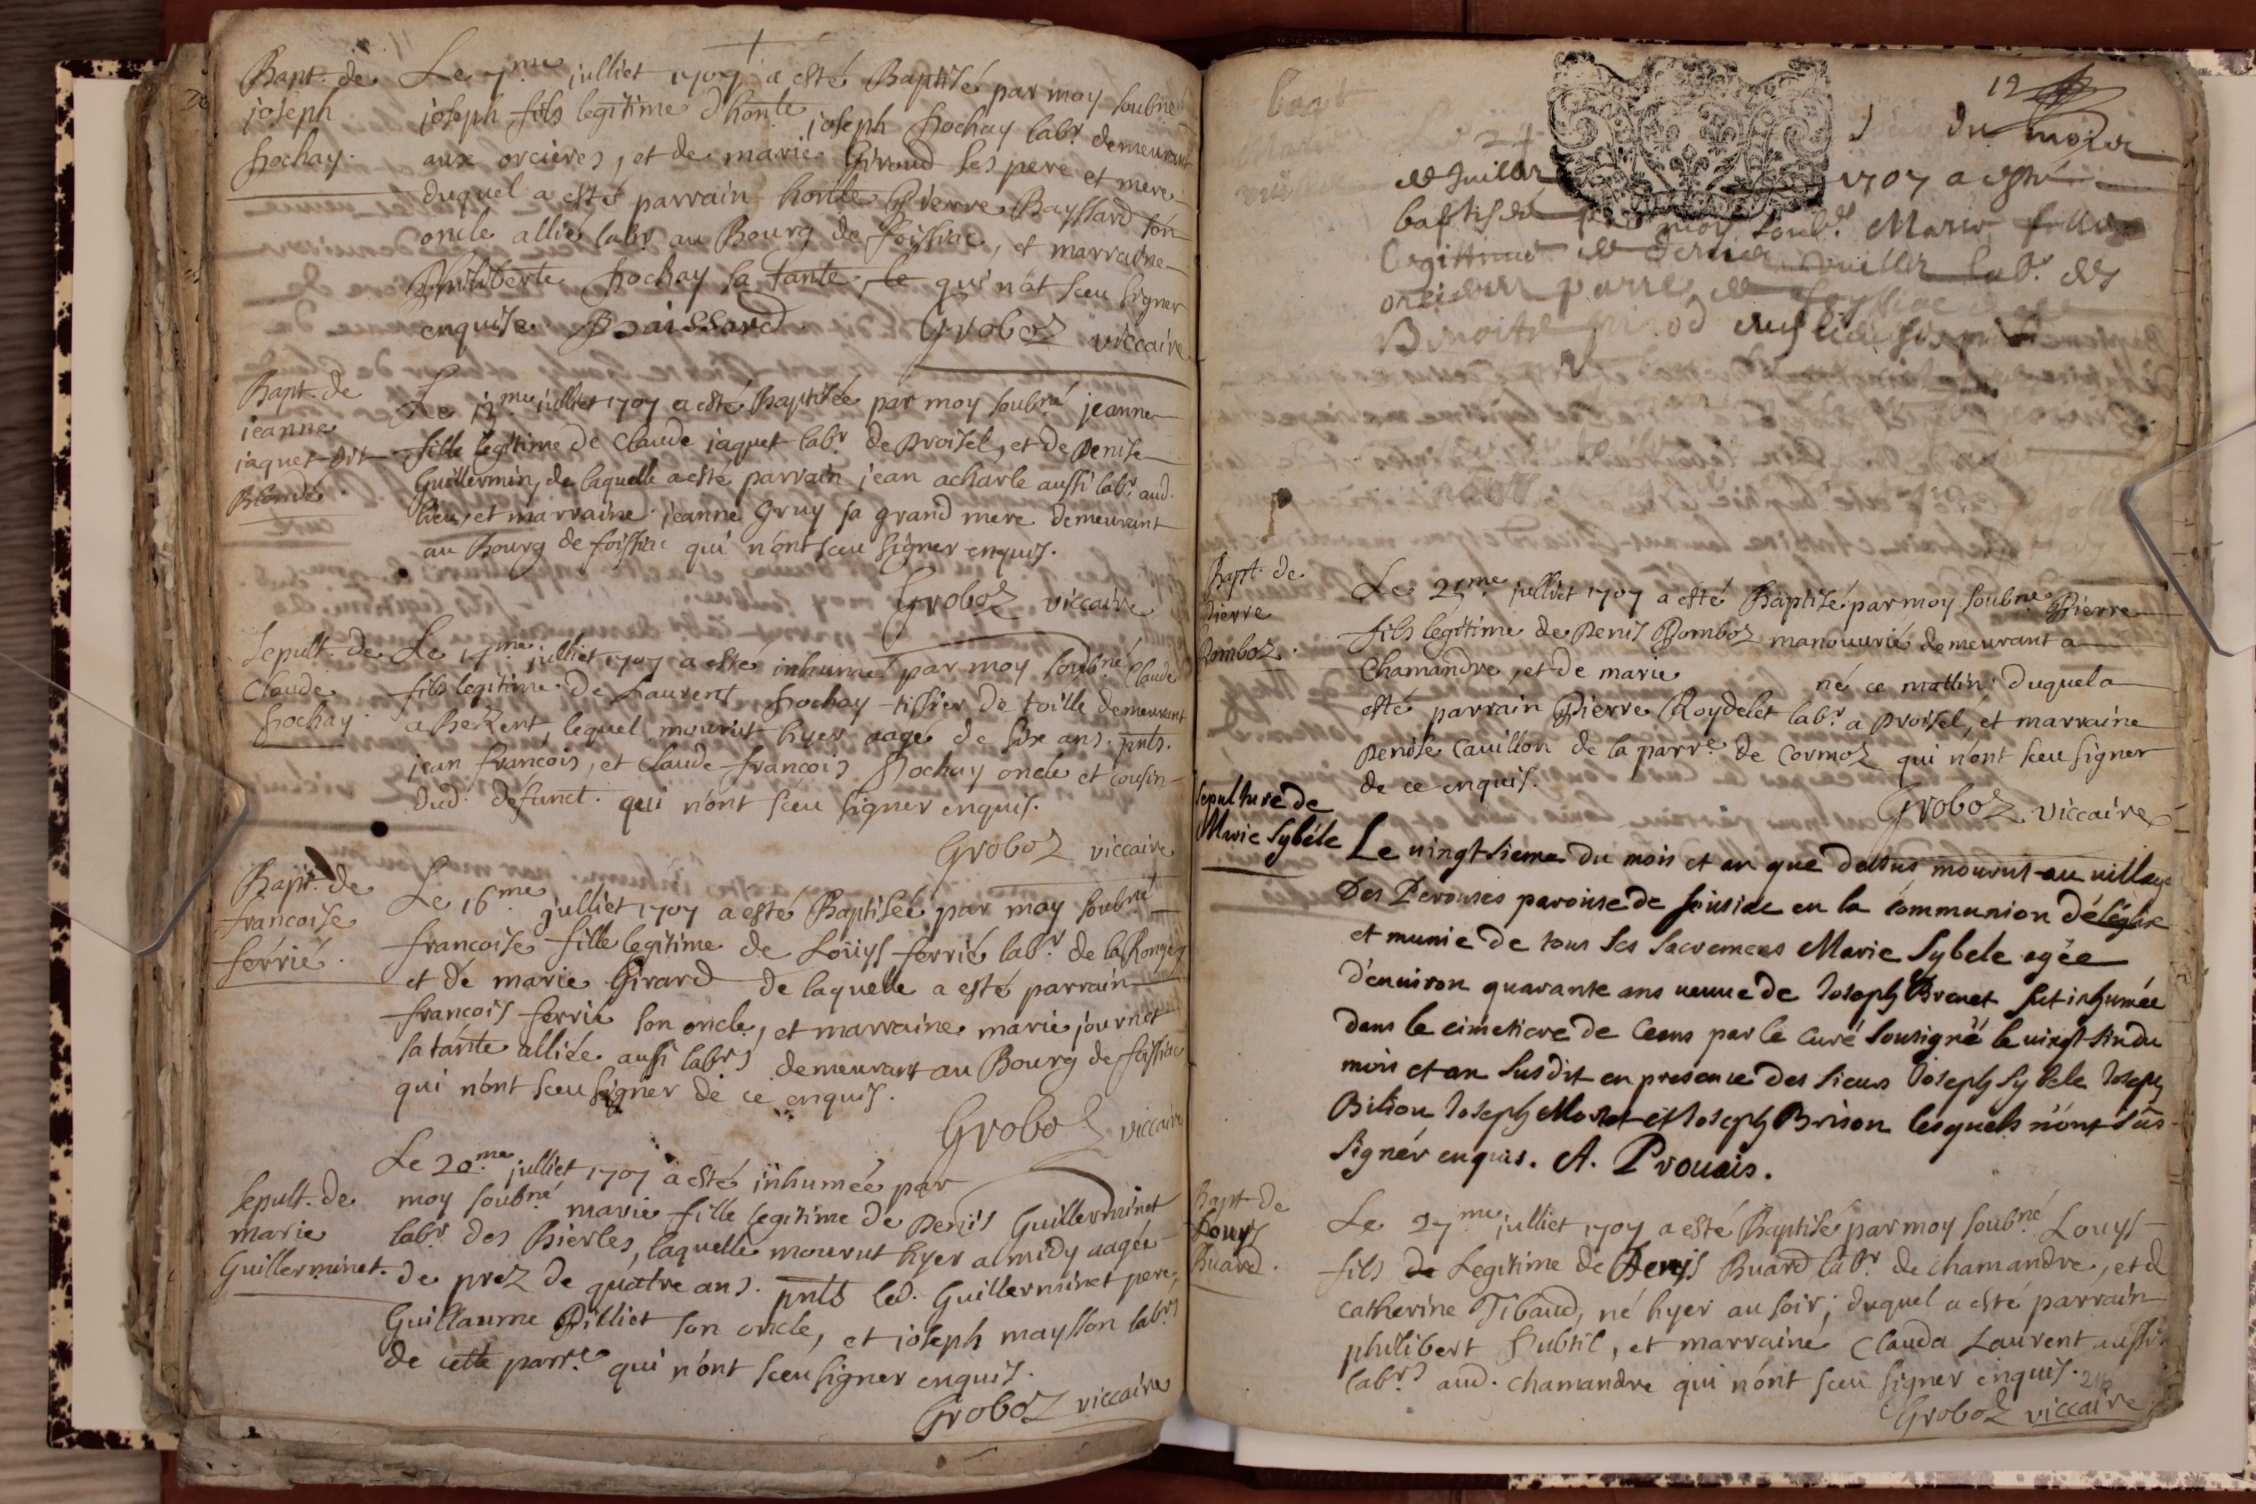 Bapt. de
joseph
hochay.
Le 7.me julliet 1707 a esté Baptisé par moy soubné
joseph fils legitime d'honle joseph hochay labr. demeurant
aux orcieres, et de marie Giroud ses pere et mere
duquel a esté parrain honle Pierre Bayssard son
oncle allié labr au Bourg de foissiac, et marraine
Philiberte hochay sa tante, le qui n'ät sceu signer
enquise. Baissard Groboz viccaire
Bapt. de
jeanne
jaquet dit
Blondé.
Le julliet 1707 a esté Baptisée par moy soubné jeanne
fille legitime de Claude jaquet labr de Proisel, et de Denise
Guillermin, de laquelle a esté parrain jean acharle aussi labr. aud.
lieu, et marraine jeanne Gruy sa grand mere demeurant
au Bourg de foissiac qui n'ont sceu signer enquis.
Groboz viccaire
Sepult. de
Claude
hochay.
Le 17.me julliet 1707 a esté inhumé par moy soubné Claude
fils legitime de Laurent hochay tissier de toille demeurant
a lequel mourut hyer aage de six ans. pnts.
jean françois, et Claude françois hochay oncle et cousin
dud. defunct. qui n'ont sceu signer enquis.
Groboz viccaire
Bapt. de
francoise
ferrié.
Le 16.me julliet 1707 a esté Baptisée par moy soubné
francoise fille legitime de Loüys ferrié labr. de la
et de marie Girard de laquelle a esté parrain
francois ferrié son oncle, et marraine marie journet
sa tante alliée aussi labrs demeurant au Bourg de foissiac
qui n'ont sceu signer de ce enquis.
Groboz viccaire
Sepult. de
marie
Guillerminet.
Le 20.me julliet 1707 a esté inhumée par
moy soubné marie fille legitime de Denis Guillerminet
labr. des Bierles, laquelle mourut hyer a midy aagée
de prez de quatre ans. pnts led. Guillerminet pere,
Guillaume Pilliet son oncle, et joseph maysson labrs
de cette parre. qui n'ont sceu signer enquis.
Groboz viccaire
12
24 du mois
de Juillet 1707 a esté
baptisée moy soub. Marie fille
legittime de labr. des
orcieres parre de foyssiac
Benoite
Bapt. de
Pierre
Bomboz.
Le 25.me julliet 1707 a esté Baptisé par moy soubné Pierre
fils legitime de Denis Bomboz manouurié demeurant a
Chamandre, et de marie né ce mattin duquel a
esté parrain Pierre Roydelet labr. a Proisel, et marraine
Denise Cauillon de la parre. de Cormoz qui n'ont sceu signer
de ce enquis.
Groboz viccaire
Sepulture de
Marie Sybéle
Le uingtsieme du mois et an que dessus mourut au uillage
Des Perouses paroisse de foissiac en la communion de léglise
et munie de tous ses sacremens Marie Sybele agée
d'enuiron quarante ans ueuue de Joseph Brenet fut inhumée
dans le cimetiere de Ceans par le curé sousigné le uingt sin du
mois et an susdit en presence des sieurs Joseph Sybele Joseph
Bilion Joseph Morel et Joseph Brison lesquels n'ont sus
signér enquis. A. Prouais.
Bapt. de
Louys
Buard.
Le 27.me julliet 1707 a esté Baptisé par moy soubné Louys
fils de Legitime de Denys Buard labr. de chamandre, et d
catherine Tibaud, né hyer au soir, duquel a esté parrain
philibert Subtil, et marraine Clauda Laurent aussi
labrs aud. chamandre qui n'ont sceu signer enquis.
Groboz viccaire